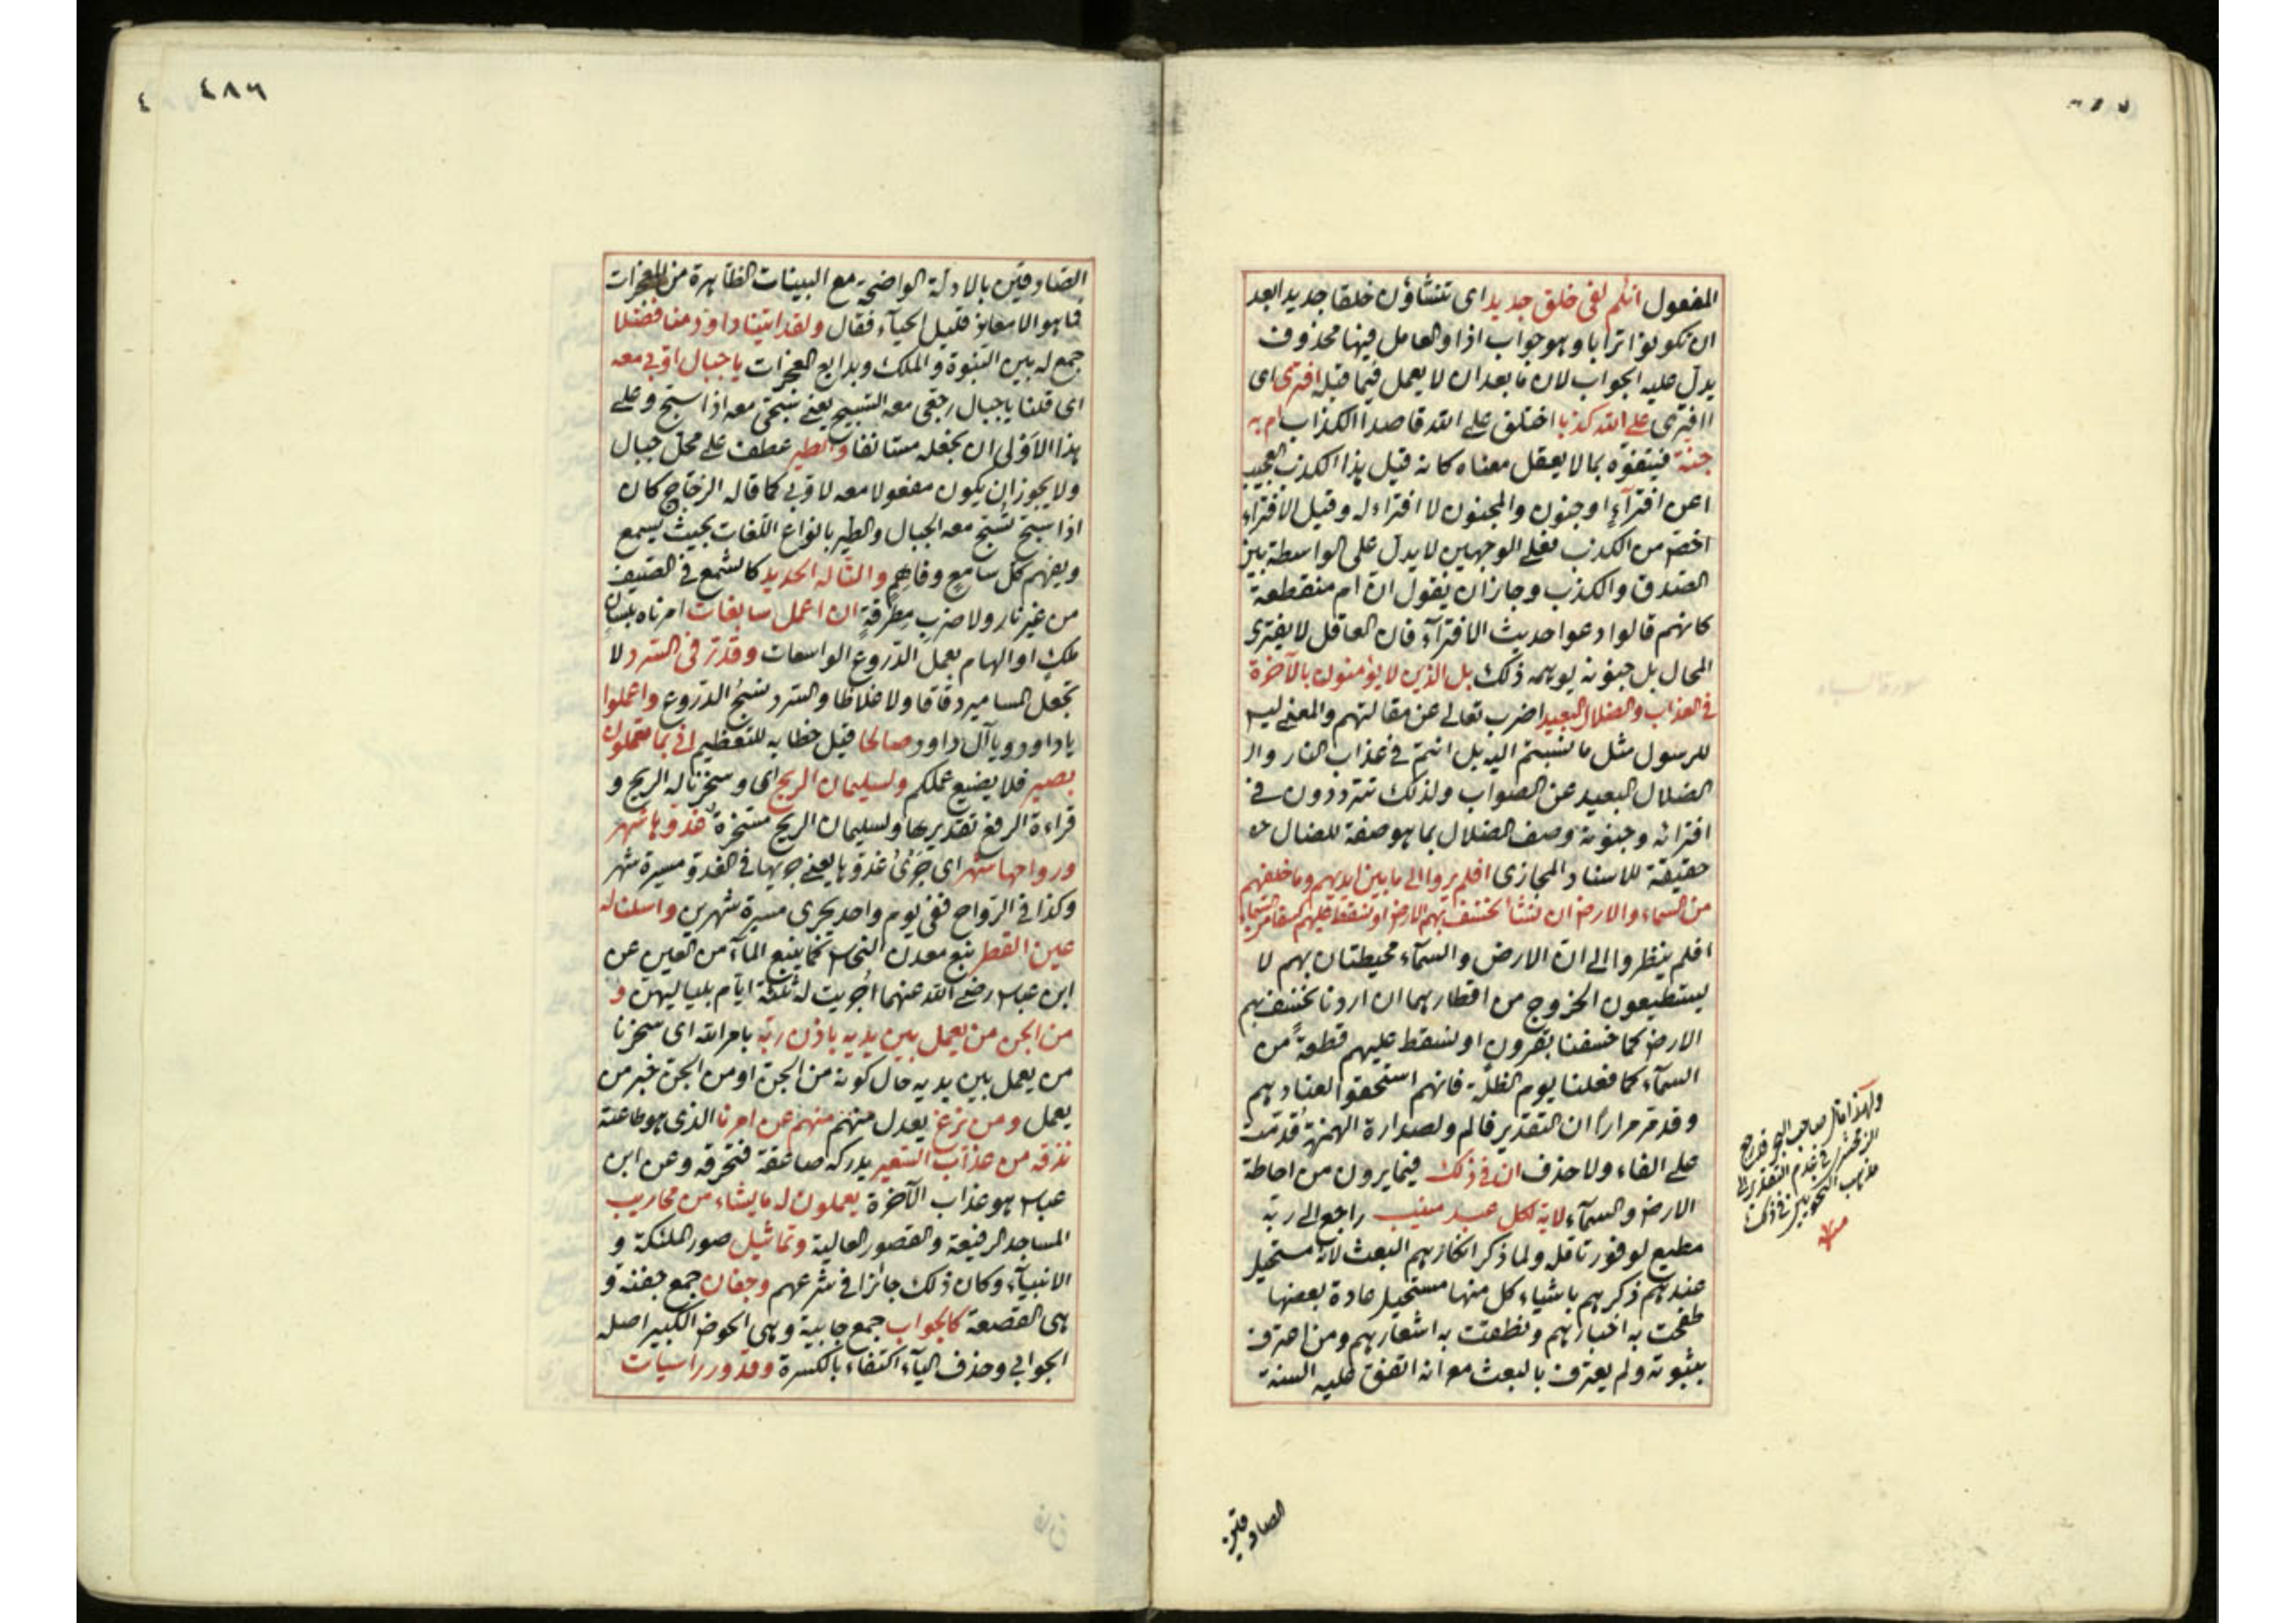 المفعول انكم لفى خلق جديد اى تنشاؤن خلقا جديدا بعد
ان تكونوا ترابا وهو جواب اذا والعامل فيها محذوف
يدل عليه الجواب لان ما بعد ان لا يعمل فيما قبله افترى اى
اافترى على الله كذبا اختلق على الله قاصدا الكذاب ام به
جنة فيتفوه بما لا يعقل معناه كانه قيل هذا الكذب العجيب
اعن افترآء او جنون والمجنون لا افتراء له وقيل الافتراء
اخص من الكذب فعلى الوجهين لا يدل على الواسطة بين
الصدق والكذب وجاز ان يقول ان ام منقطعة
كانهم قالوا دعوا حديث الافترآء فان العاقل لا يفترى
المحال بل جنونه يوهمه ذلك بل الذين لا يؤمنون بالآخرة
فى العذاب والضلال البعيد اضرب تعالى عن مقالتهم والمعنى ليس
للرسول مثل ما نسبتم اليه بل انتم فى عذاب النار وال
الضلال البعيد عن الصواب ولذلك تترددون فى
افترائه وجنونه وصف الضلال بما هو صفة للضال
حقيقة للاسناد المجازى افلم يروا الى ما بين ايديهم وما خلفهم
من السماء والارض ان نشأ نخسف بهم الارض او نسقط عليهم كسفا من السماء
افلم ينظروا الى ان الارض والسمآء محيطتان بهم لا
يستطيعون الخروج من اقطارهما ان اردنا نخسف بهم
الارض كما خسفنا بقرون او نسقط عليهم قطعة من
السمآء كما فعلنا يوم الظلة فانهم استحقوا لعنادهم
وقد مر مرارا ان التقدير فالم ولصدارة الهمزة قدمت
على الفاء ولا حذف ان فى ذلك فيما يرون من احاطة
الارض والسمآء لاية لكل عبد منيب راجع الى ربه
مطيع لوفور تاقله ولما ذكر انكارهم البعث لانه مستحيل
عندهم ذكرهم باشياء كل منها مستحيل عادة بعضها
طفحت به اخبارهم ونطقت به اشعارهم ومن اعترف
بثبوته ولم يعترف بالبعث مع انه اتفق عليه السنة
ولهذا قال صاحب البحر فرجع
الزمخشرى فى عدم التقدير الى
مذهب النحويين فى ذلك
منه
الصادقين
٤٨٦
الصادقين بالادلة الواضحة مع البينات الظاهرة من المعجزات
فما هو الا معاند قليل الحيآء فقال ولقد اتينا داود منا فضلا
جمع له بين النبوة والملك وبدايع المعجزات يا جبال اوبى معه
اى قلنا يا جبال رجعى معه التسبيح يعنى سبحى معه اذا سبح وعلى
هذا الاولى ان يجعله مستانفا والطير عطف على محل جبال
ولا يجوز ان يكون مفعولا معه لاوبى كما قاله الزجاج كان
اذا سبح تسبح معه الجبال والطير بانواع اللغات بحيث يسمع
ويفهم كل سامع وفاهم والنا له الحديد كالشمع فى الصيف
من غير نار ولا ضرب مطرقة ان اعمل سابغات امرناه بلسان
ملك او الهام بعمل الدروع الواسعات وقدر فى السرد لا
تجعل المسامير دقاقا ولا غلاظا والسرد نسج الدروع واعملوا
يا داود ويا آل داود صالحا قيل خطابه للتعظيم انى بما تعملون
بصير فلا يضيع عملكم ولسليمان الريح اى وسخرنا له الريح و
قراءة الرفع تقديرها ولسليمان الريح مسخرة غدوها شهر
ورواحها شهر اى جرى غدوها يعنى جريها فى الغدو مسيرة شهر
وكذا فى الرواح ففى يوم واحد يجرى مسيرة شهرين واسلنا له
عين القطر نبع معدن النحاس كما ينبع المآء من العين عن
ابن عباس رضى الله عنهما اجريت له ثلثة ايام بلياليهن و
من الجن من يعمل بين يديه باذن ربه بامر الله اى سخرنا
من يعمل بين يديه حال كونه من الجن او من الجن خبر من
يعمل ومن يزغ يعدل منهم عن امرنا الذى هو طاعته
نذقه من عذاب السعير يدركه صاعقة فتحرقه وعن ابن
عباس هو عذاب الآخرة يعملون له ما يشاء من محاريب
المساجد الرفيعة والقصور العالية وتماثيل صور الملئكة و
الانبيآء وكان ذلك جائزا فى شرعهم وجفان جمع جفنة و
هى القصعة كالجواب جمع جابية وهى الحوض الكبير اصله
الجوابى وحذف اليآء اكتفاء بالكسرة وقدور راسيات